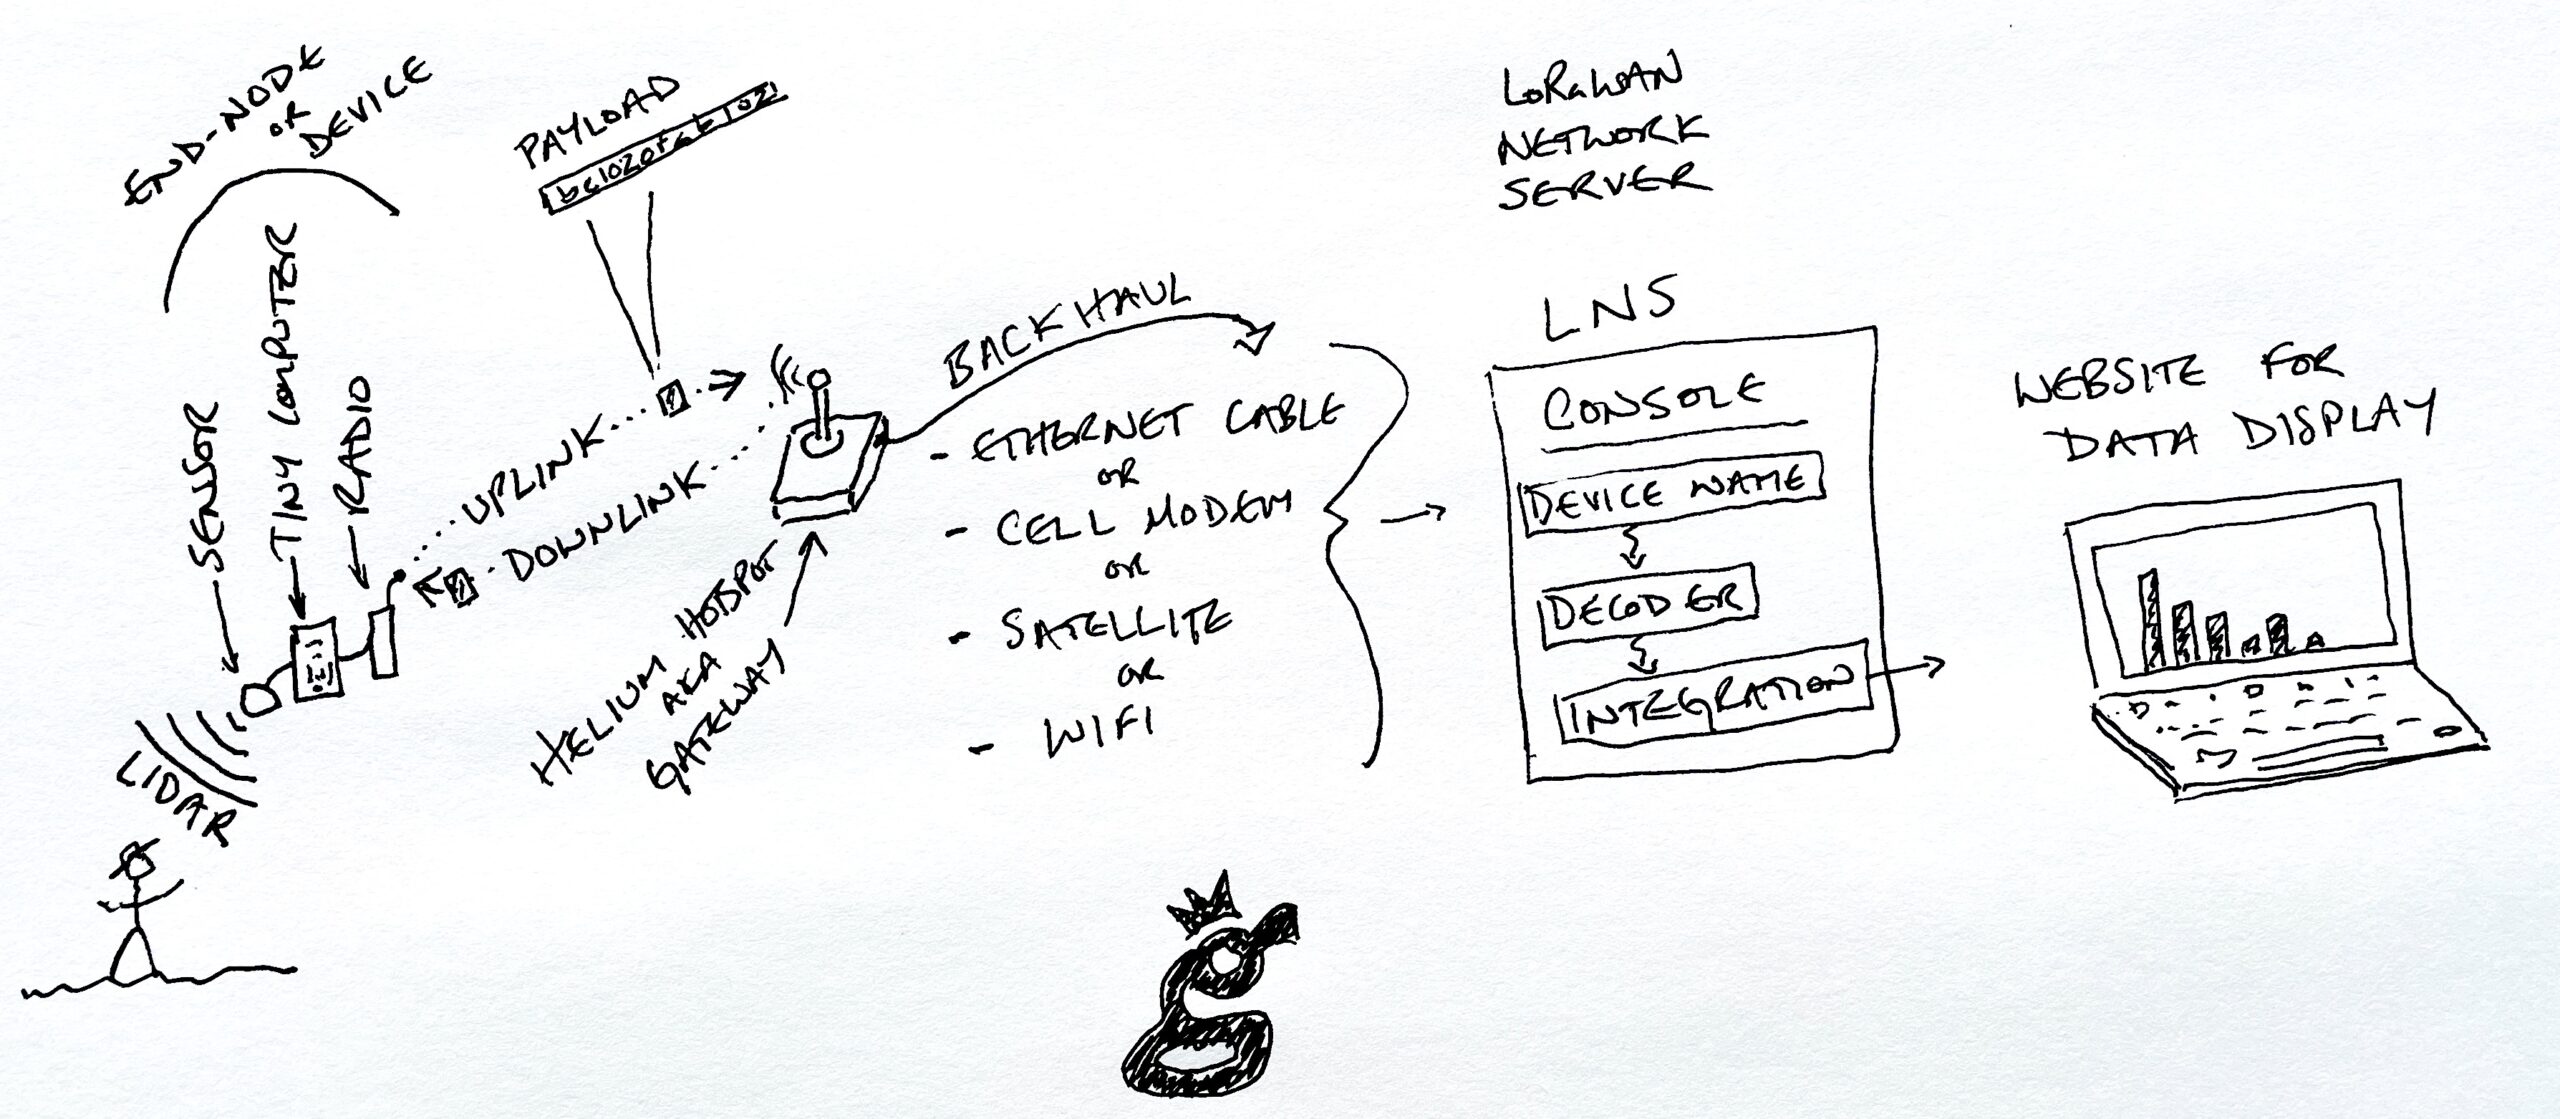 END-NODE
OR
DEVICE
SENSOR
TINY COMPUTER
RADIO
LIDAR
PAYLOAD
UPLINK
DOWNLINK
HELIUM HOTSPOT
AKA
GATEWAY
BACKHAUL
- ETHERNET CABLE
OR
- CELL MODEM
OR
- SATELLITE
OR
- WIFI
LoRaWAN
NETWORK
SERVER
LNS
CONSOLE
DEVICE NAME
DECODER
INTEGRATION
WEBSITE FOR
DATA DISPLAY